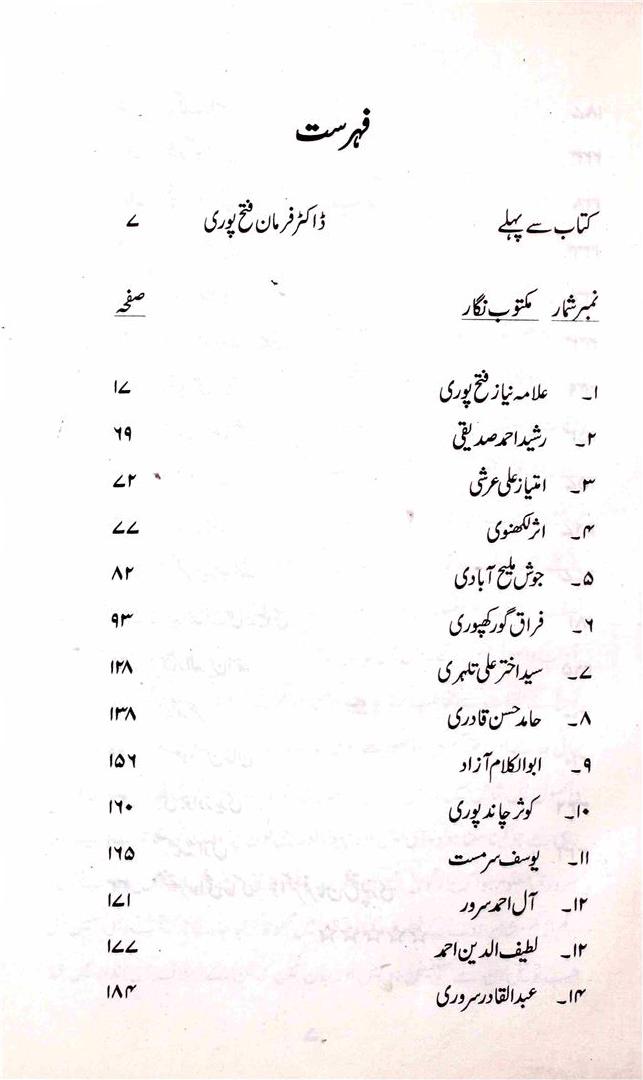 فہرست
کتاب سے پہلے ڈاکٹر فرمان فتح پوری ۷
نمبر شمار مکتوب نگار صفحہ
۱۔ علامہ نیاز فتح پوری ۱۷
۲۔ رشید احمد صدیقی ۶۹
۳۔ امتیاز علی عرشی ۷۲
۴۔ اثر لکھنوی ۷۷
۵۔ جوش ملیح آبادی ۸۲
۶۔ فراق گورکھپوری ۹۳
۷۔ سید اختر علی تلہری ۱۲۸
۸۔ حامد حسن قادری ۱۳۸
۹۔ ابوالکلام آزاد ۱۵۶
۱۰۔ کوثر چاند پوری ۱۶۰
۱۱۔ یوسف سرمست ۱۶۵
۱۲۔ آل احمد سرور ۱۷۱
۱۲۔ لطیف الدین احمد ۱۷۷
۱۴۔ عبدالقادر سروری ۱۸۴